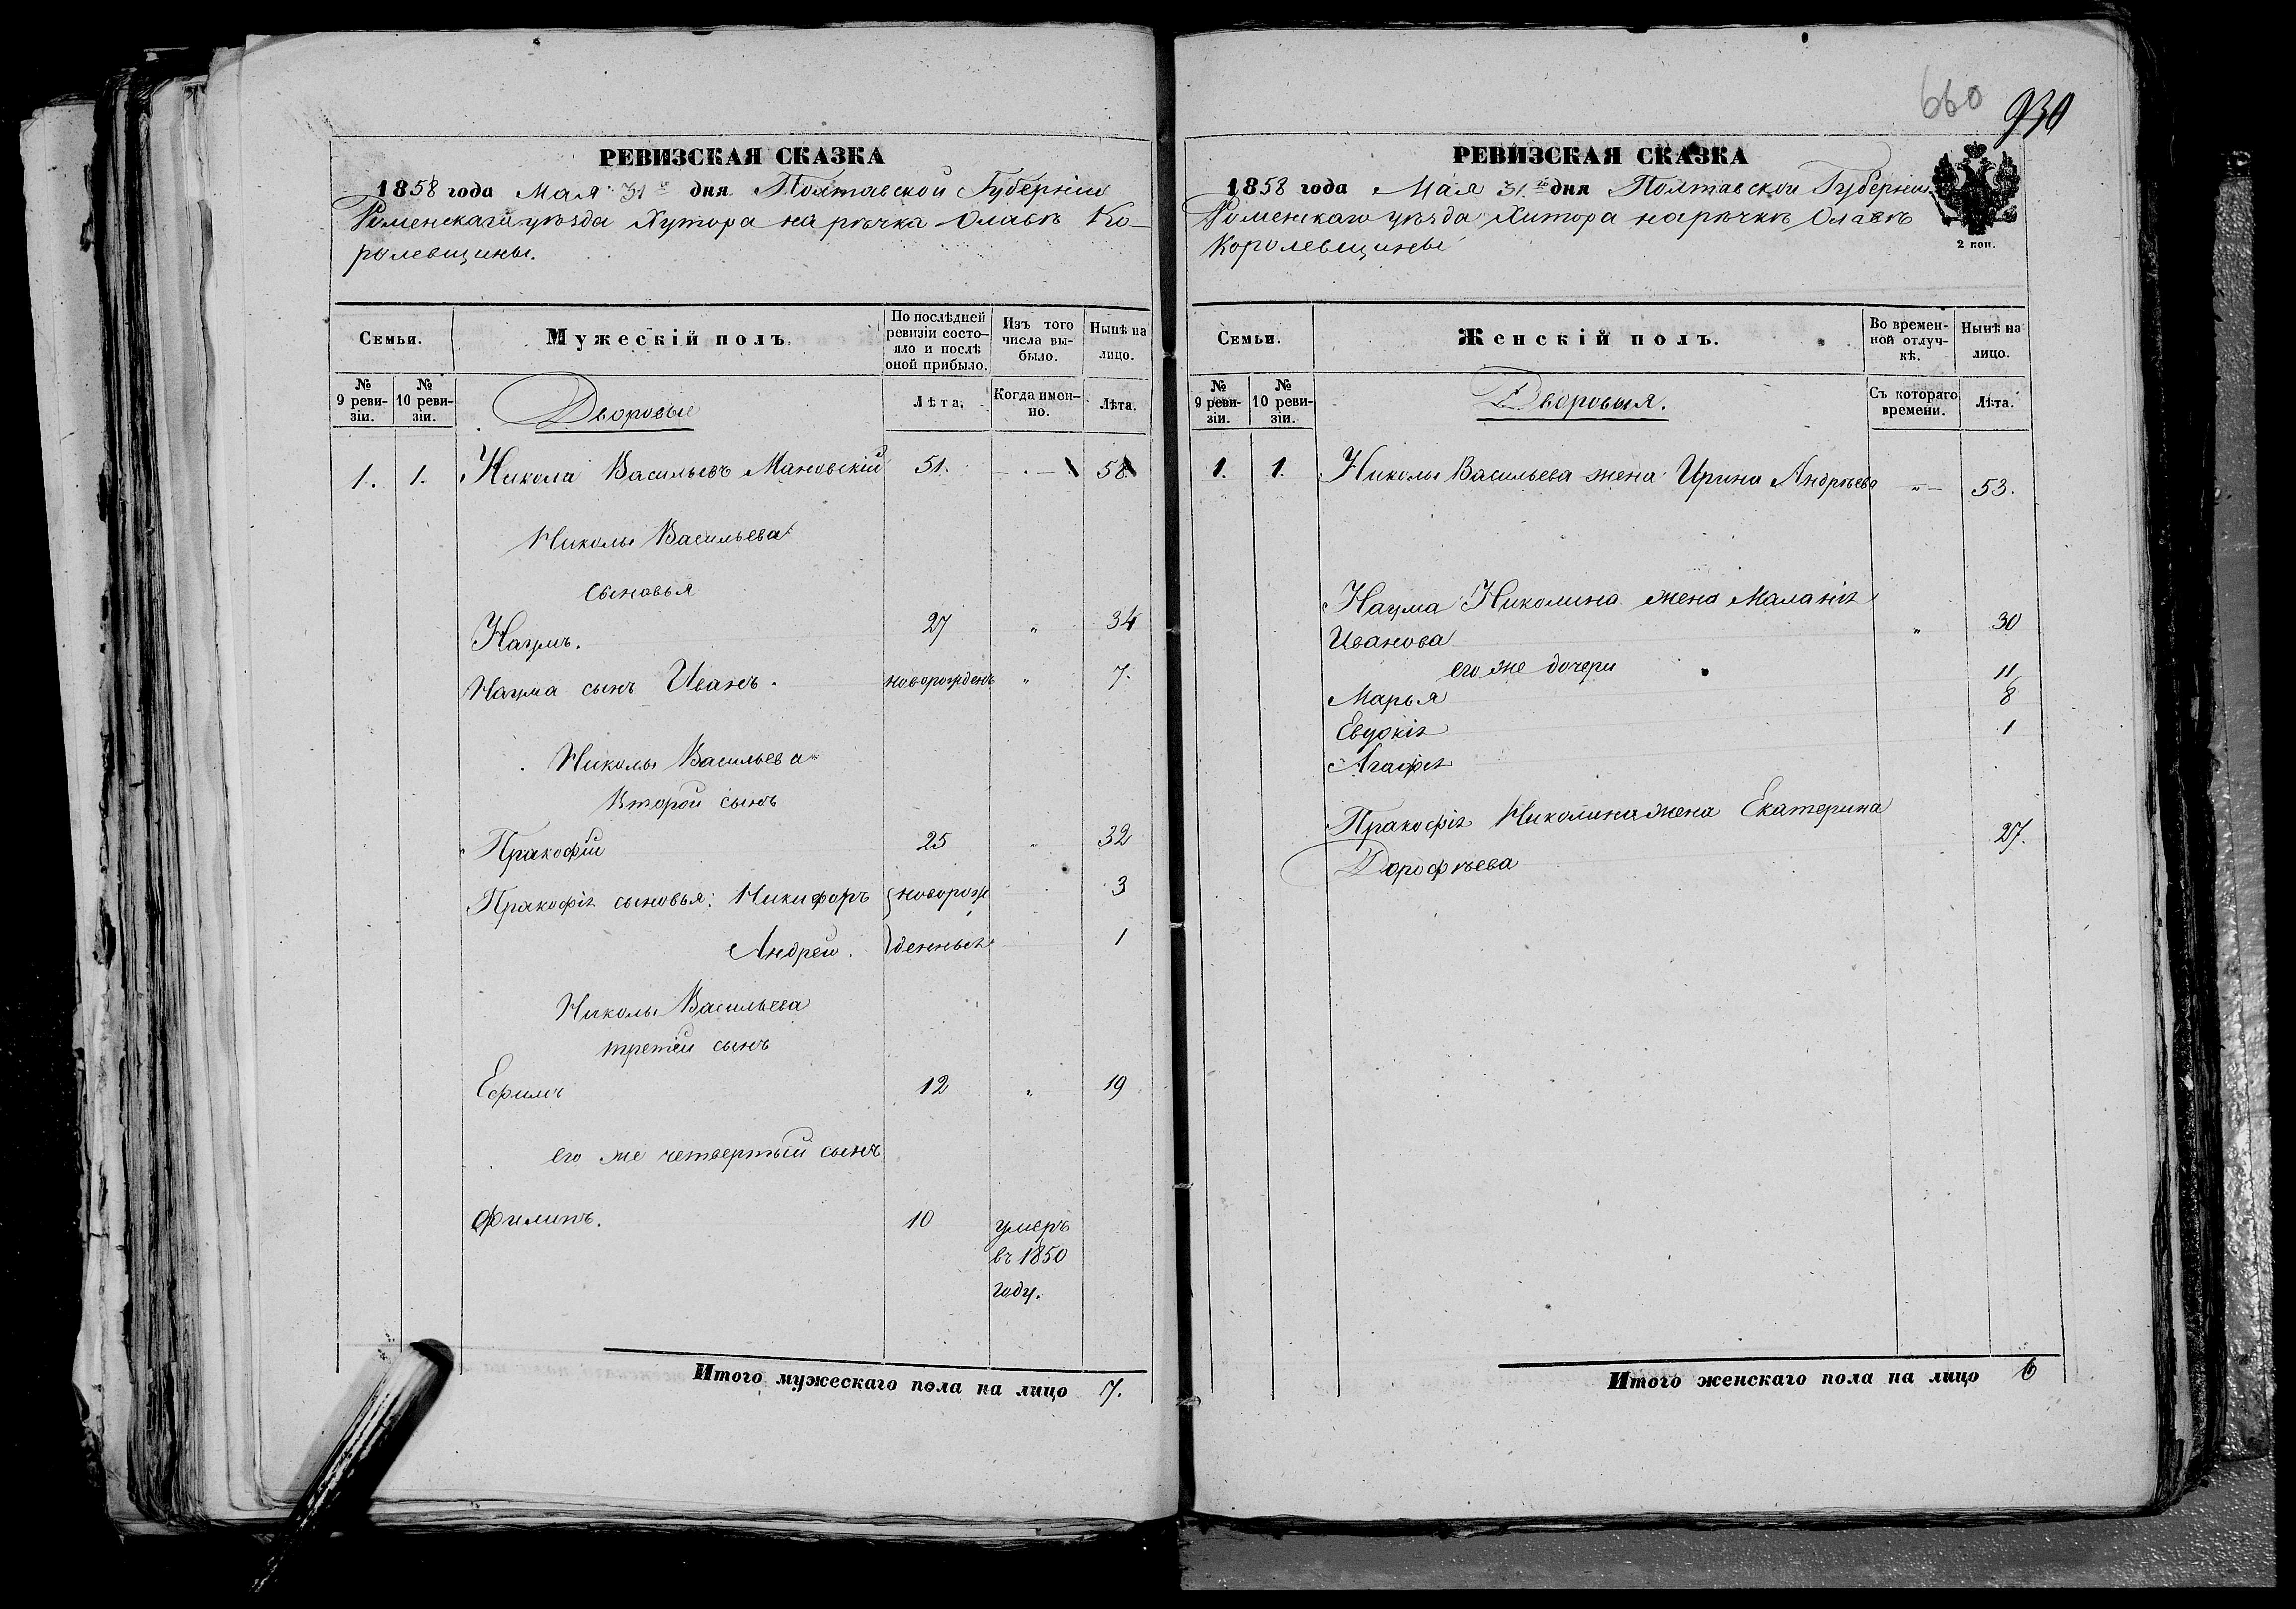 РЕВИЗСКАЯ СКАЗКА
1858 года Мая 31го дня Полтавской Губерніи
Роменскаго уѣзда Хутора на рѣчка Олавѣ Ко-
ролевщины.
Семьи.
Мужескій полъ.
По послѣдней ревизіи состо-яло и послѣ оной прибыло.
Изъ того числа вы-было.
Нынѣ на лицо.
№ 9 реви-зіи.
№ 10 реви-зіи.
Дворовые
Лѣта.
Когда имен-но.
Лѣта.
1. 1. Никола Васильевъ Мановскій 51. 58.
Николы Васильева
сыновья
Наумъ. 27 " 34
Наума сынъ Иванъ. новорожденъ " 7.
Николы Васильева
Второй сынъ
Пракофій 25 " 32
Пракофія сыновья: Никифоръ новорож 3
Андрей. денные 1
Николы Васильева
третій сынъ
Ефимъ 12 " 19
его же четвертый сынъ
Филипъ. 10 умеръ
въ 1850
году.
Итого мужескаго пола на лицо 7.
660
930
РЕВИЗСКАЯ СКАЗКА
1858 года Мая 31го дня Полтавской Губерніи
Роменскаго уѣзда Хутора на рѣчкѣ Олавѣ
Королевщины
2 коп.
Семьи.
Женскій полъ.
Во времен-ной отлуч-кѣ.
Нынѣ на лицо.
№ 9 реви-зіи.
№ 10 реви-зіи.
Дворовыя.
Съ котораго времени.
Лѣта.
1. 1. Николы Васильева жена Ирина Андрѣева "— 53.
Наума Николина жена Маланія
Иванова " 30
его же дочери
Марья 11
Евдокія 8
Агафія 1
Пракофія Николина жена Екатерина
Дорофѣева 27.
Итого женскаго пола на лицо 6